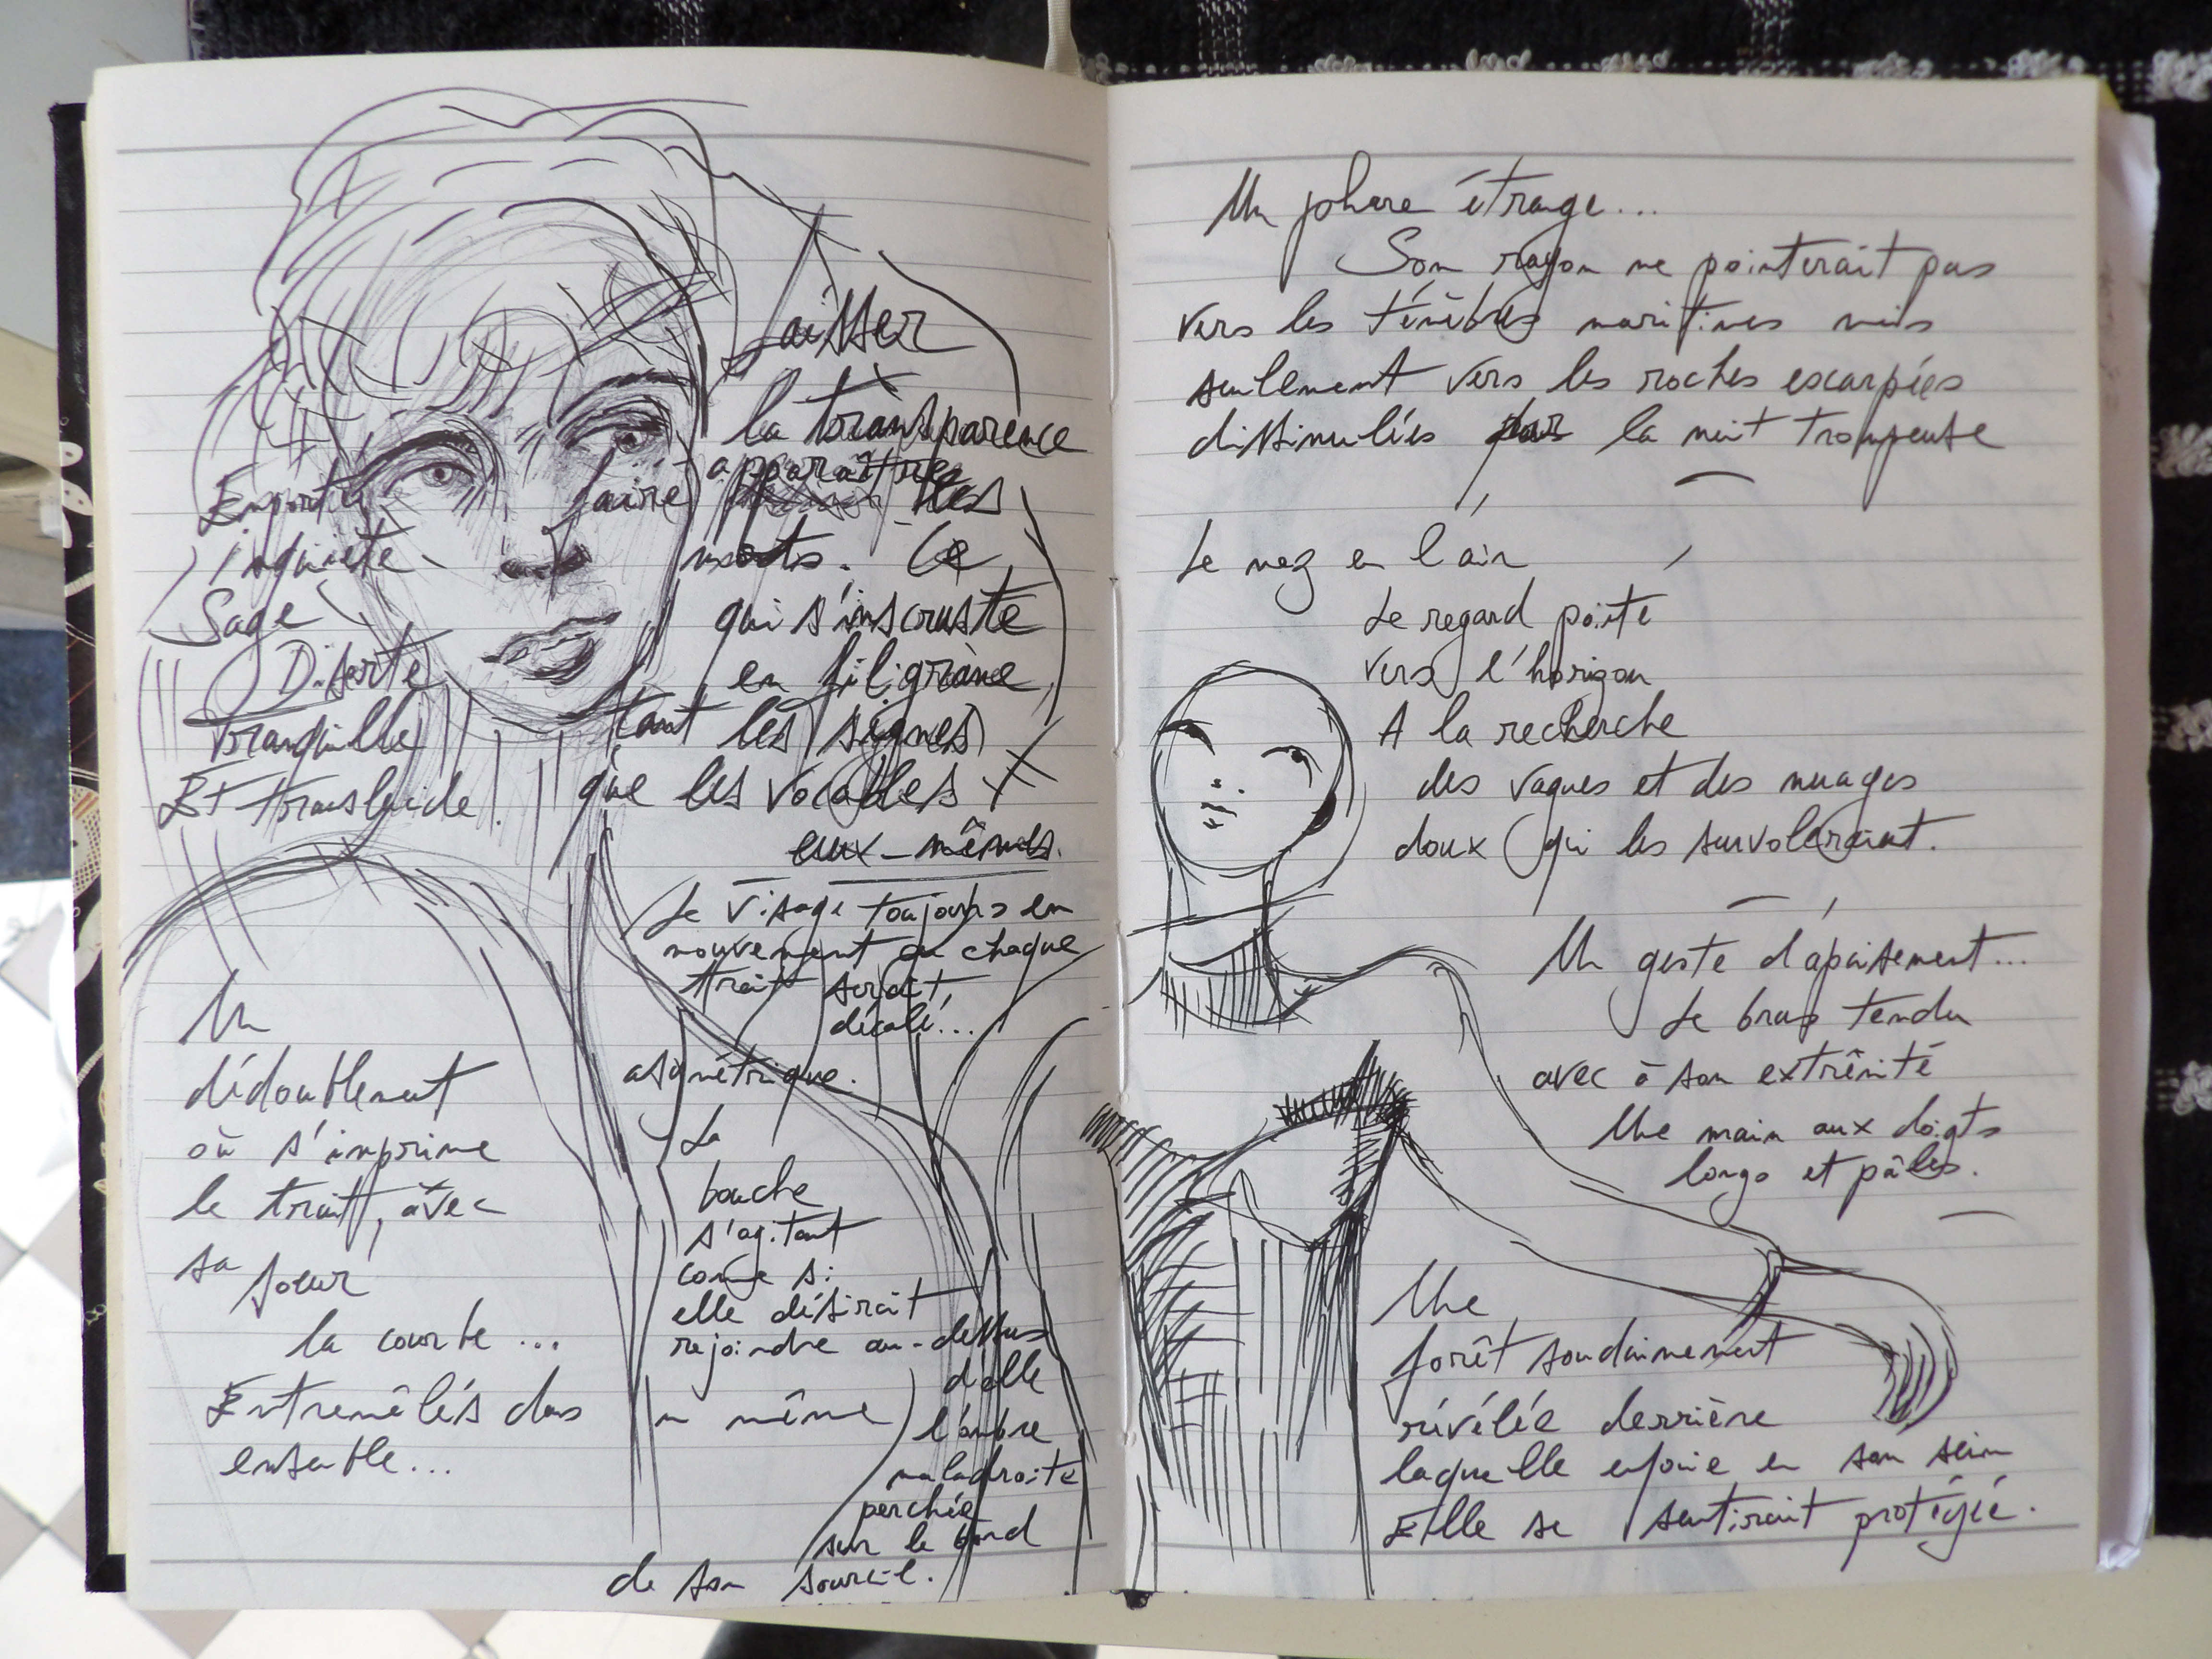 Laisser
la transparence
faire apparaître les
mots. Ce
qui s'incruste
en filigrane,
tant les signes
que les vocables
eux-mêmes.
Emportée
inquiète
Sage
Diserte
Tranquille
Et translucide!
Le visage toujours en
mouvement où chaque
trait serait,
décalé...
asymétrique.
La
bouche
s'agitant
comme si
elle désirait
rejoindre au-dessus
d'elle
l'ombre
maladroite
perchée
sur le bord
de son sourcil.
Un
dédoublement
où s'imprime
le trait, avec
sa soeur
la courbe...
Entremêlés dans un même
ensemble...
Un phare étrange...
Son rayon ne pointerait pas
vers les ténèbres maritimes mais
seulement vers les roches escarpées
dissimulées par la nuit trompeuse
Le nez en l'air
Le regard pointé
vers l'horizon
A la recherche
des vagues et des nuages
doux qui les survoleraient.
Un geste d'apaisement...
Le bras tendu
avec à son extrêmité
Une main aux doigts
longs et pâles.
Une
forêt soudainement
révélée derrière
laquelle enfouie en son sein
Elle se sentirait protégée.